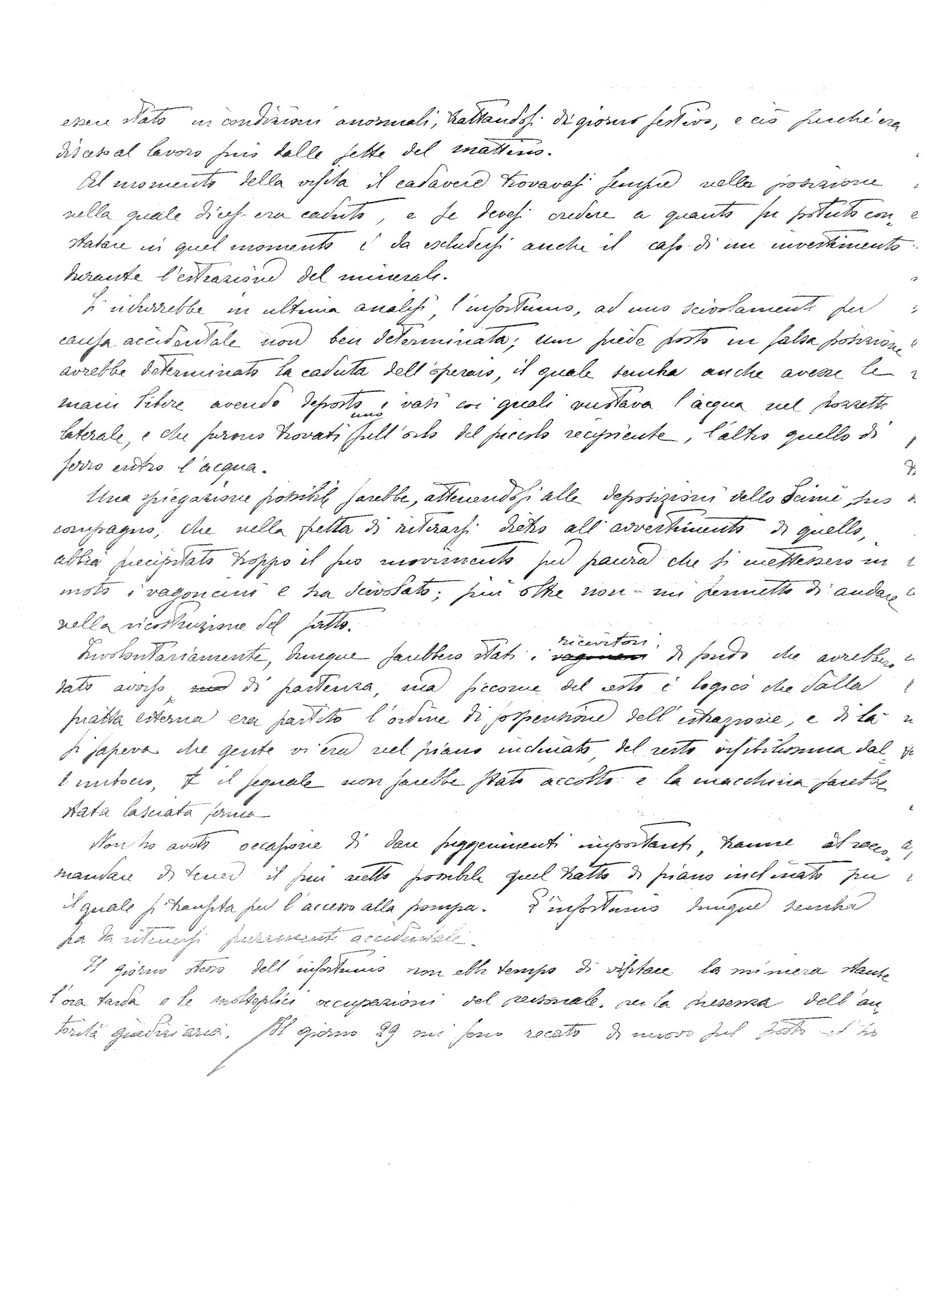 essere stato in condizioni anormali, trattandosi di giorno festivo, e ciò perché era
disceso al lavoro più dalle sette del mattino.
Al momento della visita il cadavere trovavasi sempre nella posizione
nella quale dicesi era caduto, e se devesi credere a quanto fu potuto con-
statare in quel momento è da escludersi anche il caso di un investimento
durante l'estrazione del minerale.
Si ridurrebbe in ultima analisi, l'infortunio, ad uno scivolamento per
causa accidentale non ben determinata; un piede posto in falsa posizione
avrebbe determinato la caduta dell'operaio, il quale sembra anche avesse le
mani libere avendo deposto i vasi coi quali vuotava l'acqua nel pozzetto
laterale, e che furono trovati uno sull'orlo del piccolo recipiente, l'altro quello di
ferro entro l'acqua.
Una spiegazione possibile sarebbe, attenendosi alle deposizioni dello suo
compagno, che nella fretta di ritirarsi dietro all'avvertimento di quello,
abbia precipitato troppo il suo movimento per paura che si mettessero in
moto i vagoncini e ha scivolato; più oltre non mi permetto di andare
nella ricostruzione del fatto.
Involontariamente, dunque sarebbero stati i ricevitori di fondo che avrebbero
dato avviso di partenza, ma siccome del resto è logico che dalla
piazza esterna era partito l'ordine di sospensione dell'estrazione, e di là
si sapeva che gente vi era nel piano inclinato, del resto visibilissima dal-
l'imbocco, il segnale non sarebbe stato accolto e la macchina sarebbe
stata lasciata ferma
Non ho avuto occasione di dare suggerimenti importanti, tranne di racco-
mandare di tener il più netto possibile quel tratto di piano inclinato per
il quale si transita per l'accesso alla pompa. L'infortunio dunque sembra
sia da ritenersi puramente accidentale.
Il giorno stesso dell'infortunio non ebbi tempo di visitare la miniera stante
l'ora tarda e le molteplici occupazioni del personale per la presenza dell'au-
torità giudiziaria. Il giorno 29 mi sono recato di nuovo sul posto ed ho